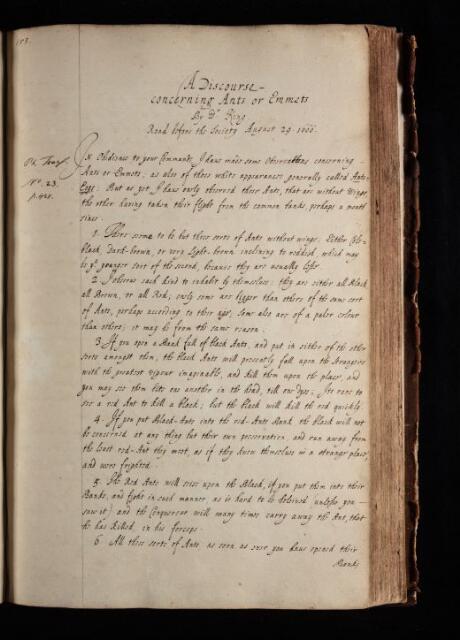 173.
A Discourse
concerning Ants or Emmets
By Dr King
Read before the Society August 29. 1666.
Ph. Trans.
No. 23.
p. 425.
In Obedience to your Commands I have made some Observations concerning
Ants or Emmets, as also of those white appearances generally called Ants-
Eggs: But as yet I have only observed those Ants, that are without Wings,
the other having taken their flight from the common banks, perhaps a month
since.
1. There seeme to be but three sorts of Ants without wings: Either
black, Dark-brown, or very Light-brown inclining to reddish, which may
be ye younger sort of the second, because they are usually lesse
2. I observe each kind to inhabit by themselves: they are either all Black
all Brown, or all Red; only some are bigger than others of the same sort
of Ants, perhaps according to their age; Some also are of a paler colour
than others; it may be from the same reason.
3. If you open a Bank full of black Ants, and put in either of the other
sorts amongst them, the black Ants will presently fall upon the strangers
with the greatest vigour imaginable, and kill them upon the place; and
you may see them bite one another in the head, till one dyes; Its rare to
see a red Ant to kill a black; but the black will kill the red quickly.
4. If you put Black-Ants into the red-Ants Bank the black will not
be concerned at any thing but their own preservation, and run away from
the least red-Ant they meet, as if they knew themselves in a stranger place,
and were frighted.
5. The Red Ants will seize upon the Black, if you put them into their
Banks, and fight in such manner as is hard to be beleived unless you
saw it) and the Conquerour will many times carry away the Ant, that
he has killed, in his forceps.
6. All these sorts of Ants as soon as ever you have opened their
Banks